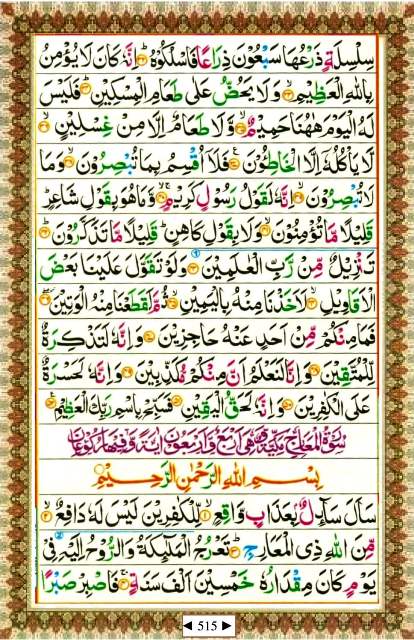 سِلْسِلَةٍ ذَرْعُهَا سَبْعُوْنَ ذِرَاعًا فَاسْلُكُوْهُ ۝٣٢ اِنَّهٗ كَانَ لَا يُؤْمِنُ
بِاللّٰهِ الْعَظِيْمِ ۝٣٣ وَلَا يَحُضُّ عَلٰى طَعَامِ الْمِسْكِيْنِ ۝٣٤ فَلَيْسَ
لَهُ الْيَوْمَ هٰهُنَا حَمِيْمٌ ۝٣٥ وَّلَا طَعَامٌ اِلَّا مِنْ غِسْلِيْنٍ ۝٣٦
لَّا يَاْكُلُهٗٓ اِلَّا الْخَاطِـُٔوْنَ ۝٣٧ فَلَآ اُقْسِمُ بِمَا تُبْصِرُوْنَ ۝٣٨ وَمَا
لَا تُبْصِرُوْنَ ۝٣٩ اِنَّهٗ لَقَوْلُ رَسُوْلٍ كَرِيْمٍ ۝٤٠ وَّمَا هُوَ بِقَوْلِ شَاعِرٍ
قَلِيْلًا مَّا تُؤْمِنُوْنَ ۝٤١ وَلَا بِقَوْلِ كَاهِنٍ قَلِيْلًا مَّا تَذَكَّرُوْنَ ۝٤٢
تَنْزِيْلٌ مِّنْ رَّبِّ الْعٰلَمِيْنَ ۝٤٣ وَلَوْ تَقَوَّلَ عَلَيْنَا بَعْضَ
الْاَقَاوِيْلِ ۝٤٤ لَاَخَذْنَا مِنْهُ بِالْيَمِيْنِ ۝٤٥ ثُمَّ لَقَطَعْنَا مِنْهُ الْوَتِيْنَ ۝٤٦
فَمَا مِنْكُمْ مِّنْ اَحَدٍ عَنْهُ حَاجِزِيْنَ ۝٤٧ وَاِنَّهٗ لَتَذْكِرَةٌ
لِّلْمُتَّقِيْنَ ۝٤٨ وَاِنَّا لَنَعْلَمُ اَنَّ مِنْكُمْ مُّكَذِّبِيْنَ ۝٤٩ وَاِنَّهٗ لَحَسْرَةٌ
عَلَى الْكٰفِرِيْنَ ۝٥٠ وَاِنَّهٗ لَحَقُّ الْيَقِيْنِ ۝٥١ فَسَبِّحْ بِاسْمِ رَبِّكَ الْعَظِيْمِ ۝٥٢
سُوْرَةُ الْمَعَارِجِ مَكِّيَّةٌ وَّهِىَ اَرْبَعٌ وَّاَرْبَعُوْنَ اٰيَةً وَّفِيْهَا رُكُوْعَانِ
بِسْمِ اللّٰهِ الرَّحْمٰنِ الرَّحِيْمِ
سَاَلَ سَآئِلٌۢ بِعَذَابٍ وَّاقِعٍ ۝١ لِّلْكٰفِرِيْنَ لَيْسَ لَهٗ دَافِعٌ ۝٢
مِّنَ اللّٰهِ ذِى الْمَعَارِجِ ۝٣ تَعْرُجُ الْمَلٰٓئِكَةُ وَالرُّوْحُ اِلَيْهِ فِىْ
يَوْمٍ كَانَ مِقْدَارُهٗ خَمْسِيْنَ اَلْفَ سَنَةٍ ۝٤ فَاصْبِرْ صَبْرًا
◄ 515 ►